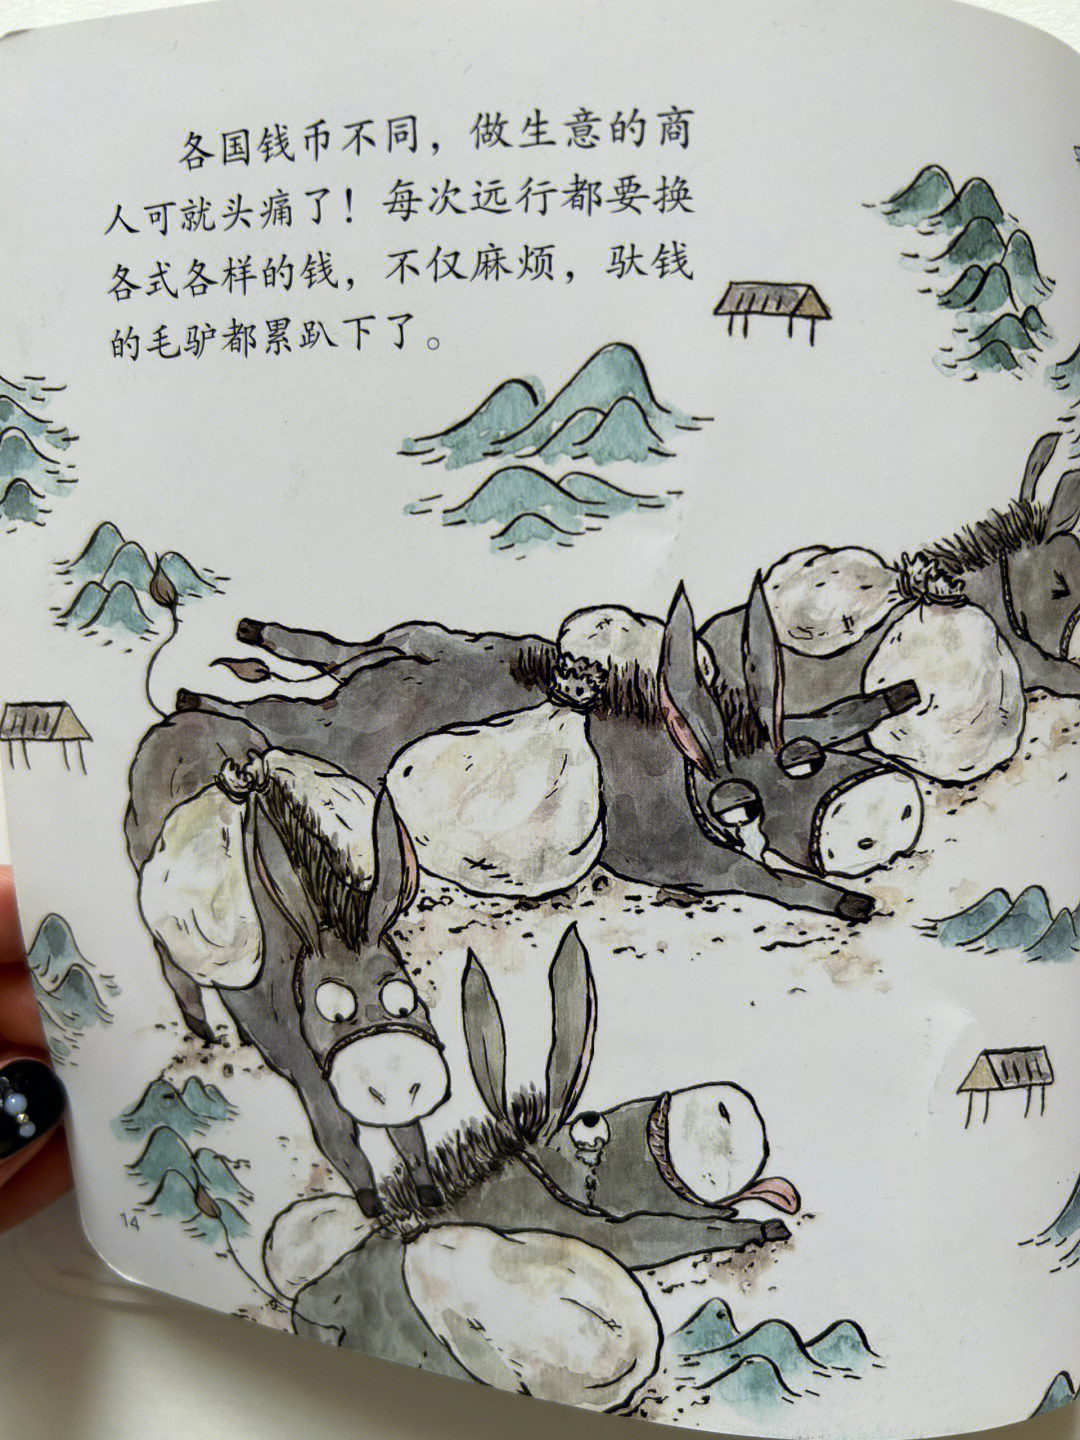 各国钱币不同，做生意的商
人可就头痛了！每次远行都要换
各式各样的钱，不仅麻烦，驮钱
的毛驴都累趴下了。
14